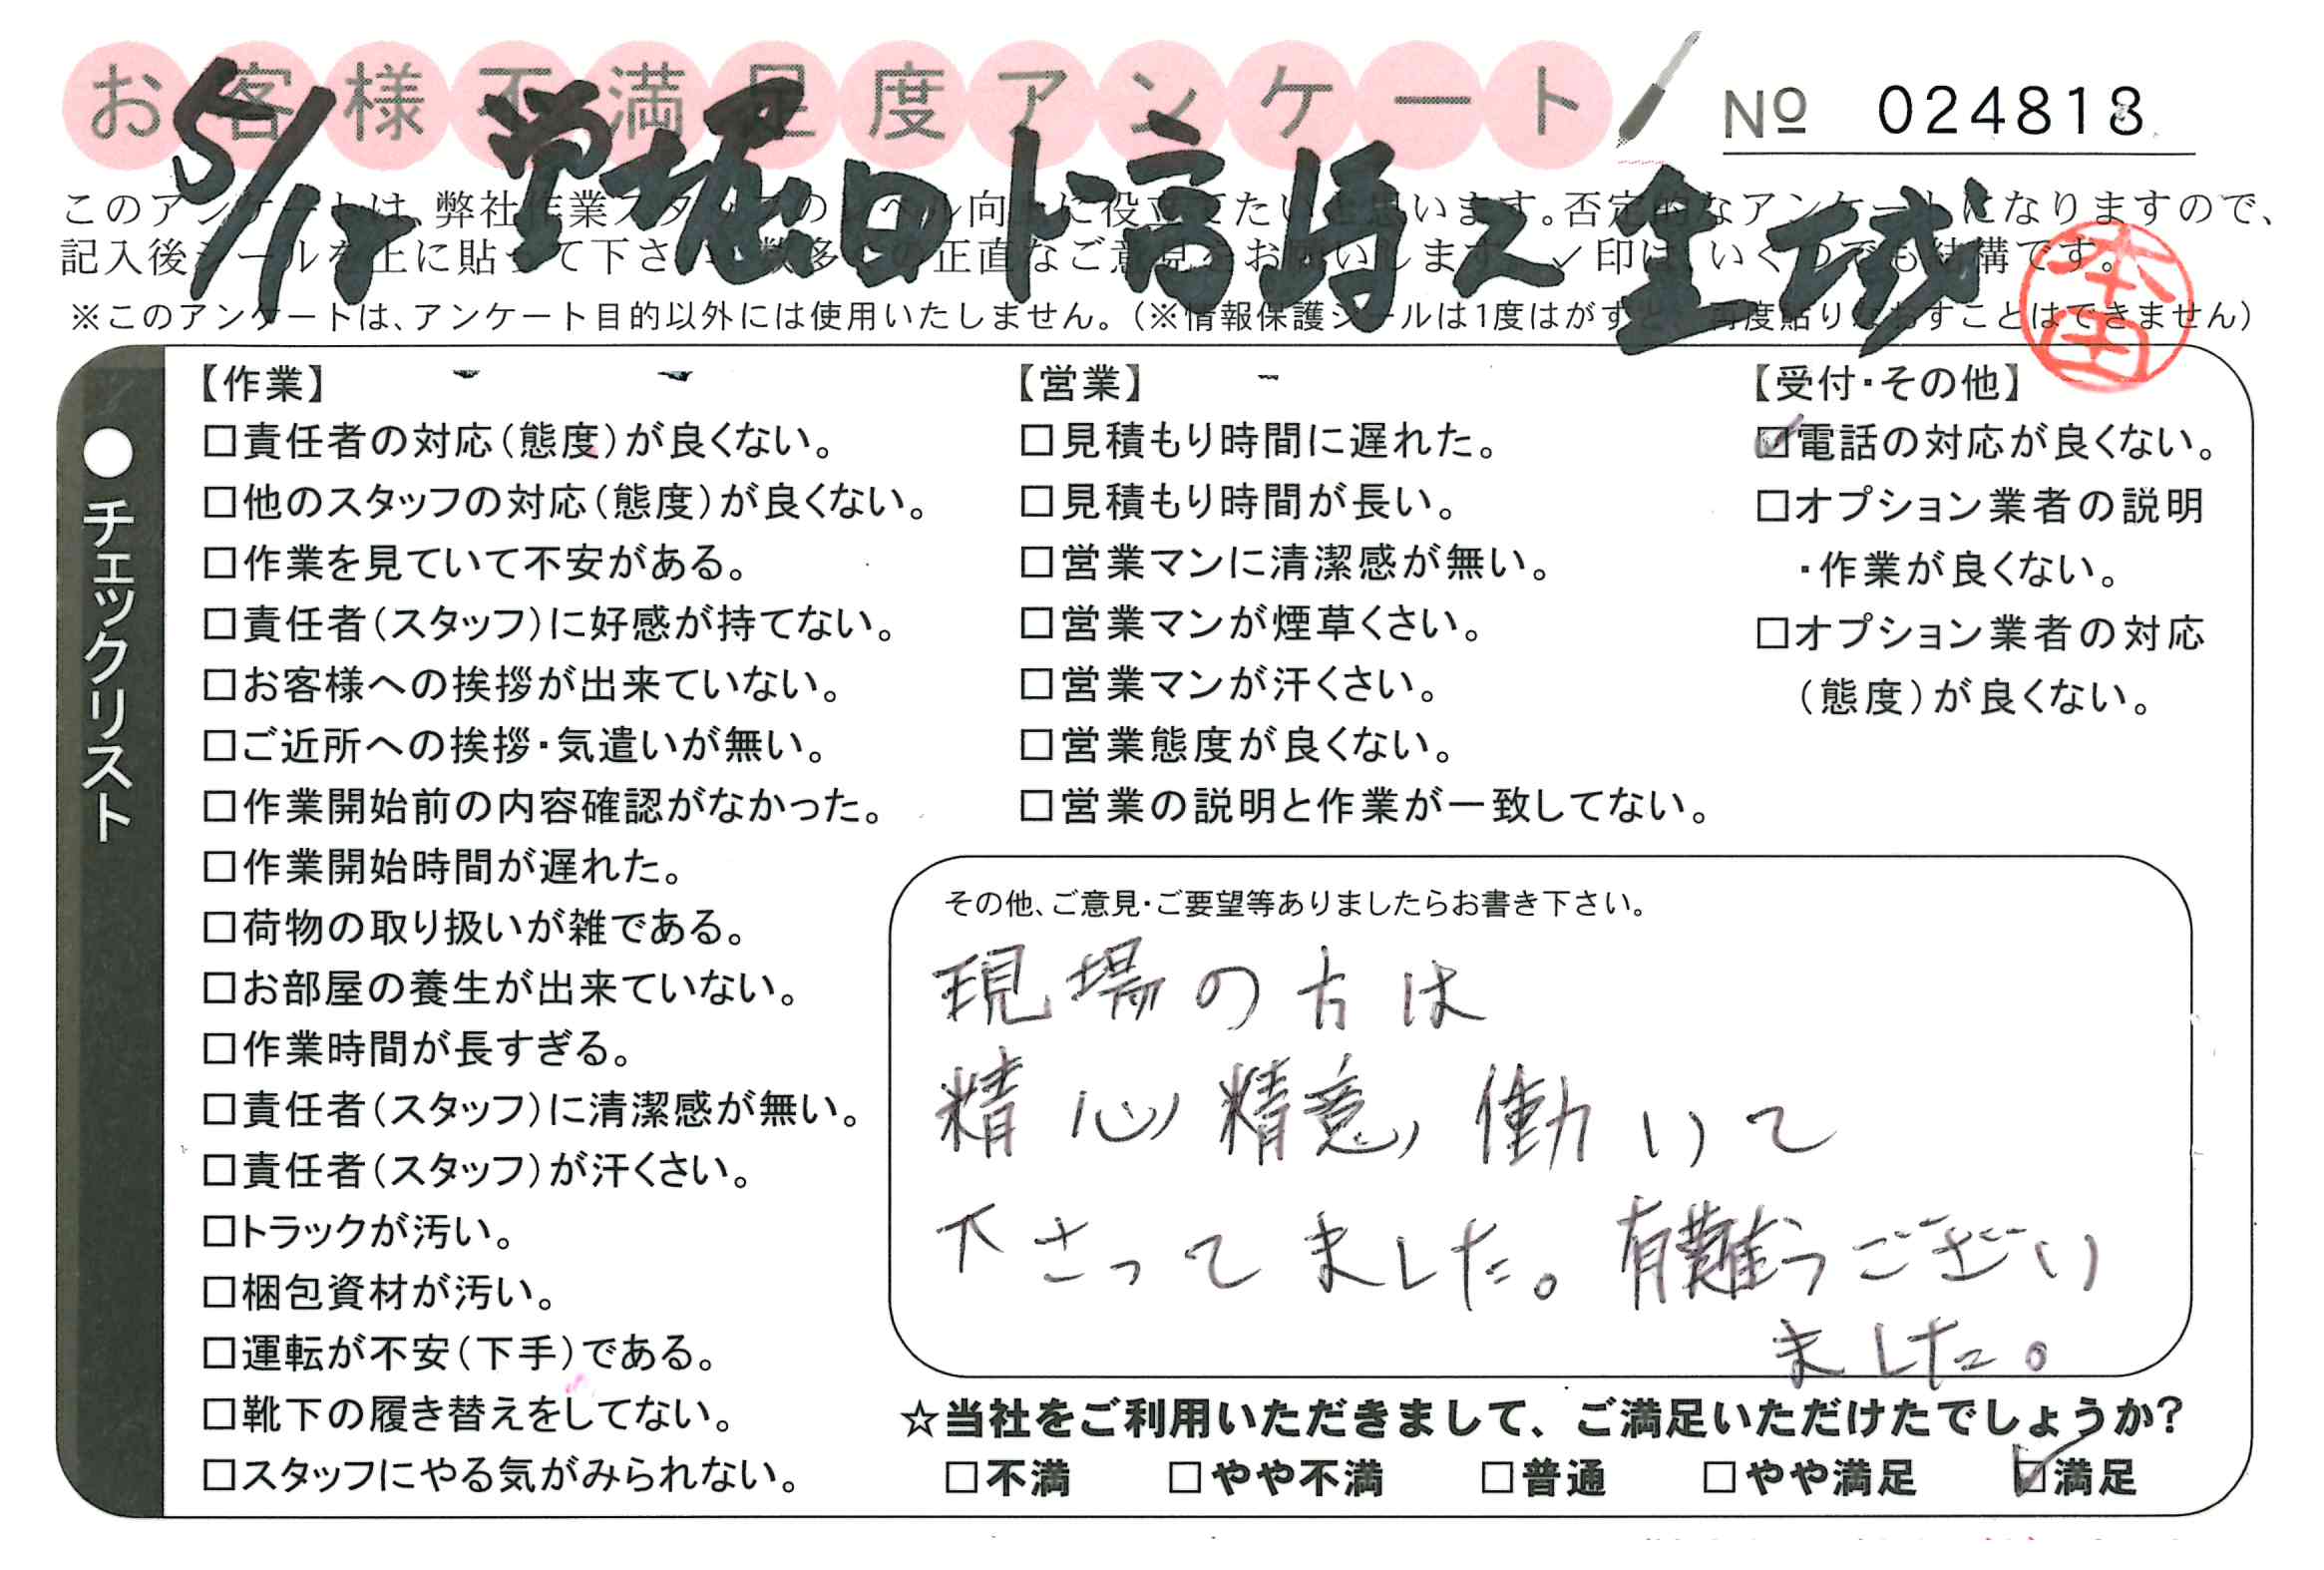 お客様不満足度アンケート
№ 024818
5/12
このアンケートは、弊社作業スタッフのレベル向上に役立てたいと思います。否定的なアンケートになりますので、
記入後シールを上に貼って下さい。数多くの正直なご意見をお願いします。✓印は、いくつでも結構です。
※このアンケートは、アンケート目的以外には使用いたしません。(※情報保護シールは1度はがすと、再度貼りなおすことはできません)
本田
●チェックリスト
【作業】
□責任者の対応(態度)が良くない。
□他のスタッフの対応(態度)が良くない。
□作業を見ていて不安がある。
□責任者(スタッフ)に好感が持てない。
□お客様への挨拶が出来ていない。
□ご近所への挨拶・気遣いが無い。
□作業開始前の内容確認がなかった。
□作業開始時間が遅れた。
□荷物の取り扱いが雑である。
□お部屋の養生が出来ていない。
□作業時間が長すぎる。
□責任者(スタッフ)に清潔感が無い。
□責任者(スタッフ)が汗くさい。
□トラックが汚い。
□梱包資材が汚い。
□運転が不安(下手)である。
□靴下の履き替えをしてない。
□スタッフにやる気がみられない。
【営業】
□見積もり時間に遅れた。
□見積もり時間が長い。
□営業マンに清潔感が無い。
□営業マンが煙草くさい。
□営業マンが汗くさい。
□営業態度が良くない。
□営業の説明と作業が一致してない。
【受付・その他】
☑電話の対応が良くない。
□オプション業者の説明
・作業が良くない。
□オプション業者の対応
(態度)が良くない。
その他、ご意見・ご要望等ありましたらお書き下さい。
現場の方は
精心精意働いて
下さってました。有難うござい
ました。
☆当社をご利用いただきまして、ご満足いただけたでしょうか?
□不満 □やや不満 □普通 □やや満足 ☑満足